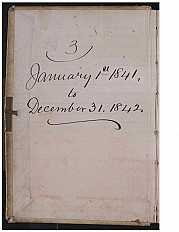 3
January 1st 1841,
to
December 31. 1842.